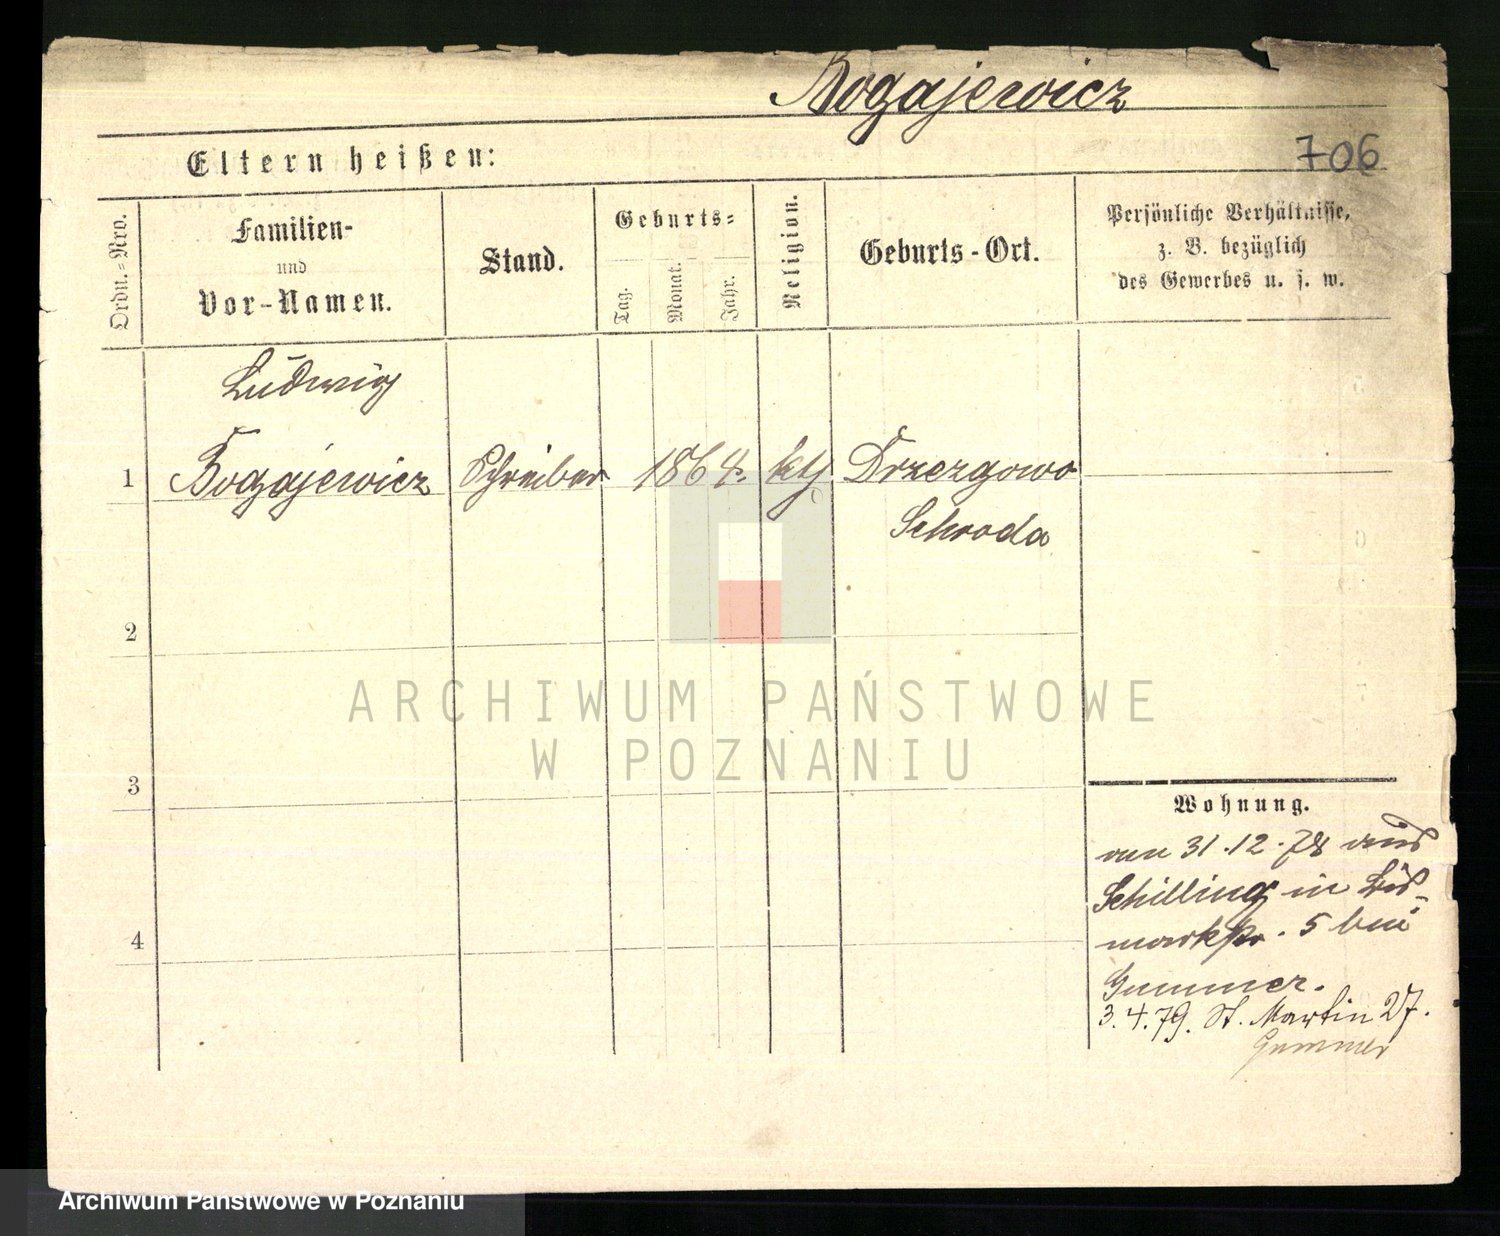 Bogajewicz
706
Eltern heißen:
Ordn.=Nro.
Familien-
und
Vor-Namen.
Stand.
Geburts=
Tag.
Monat.
Jahr.
Religion.
Geburts-Ort.
Persönliche Verhältnisse,
z. B. bezüglich
des Gewerbes u. s. w.
Ludwig
1 Bogajewicz Schreiber 1864. kth Drzezgowo
Schroda
2
3
4
Wohnung.
am 31.12.78 aus
Schilling in Bis-
markstr. 5 bei
Gummer.
3.4.79. St. Martin 27.
Gummer
ARCHIWUM PAŃSTWOWE
W POZNANIU
Archiwum Państwowe w Poznaniu